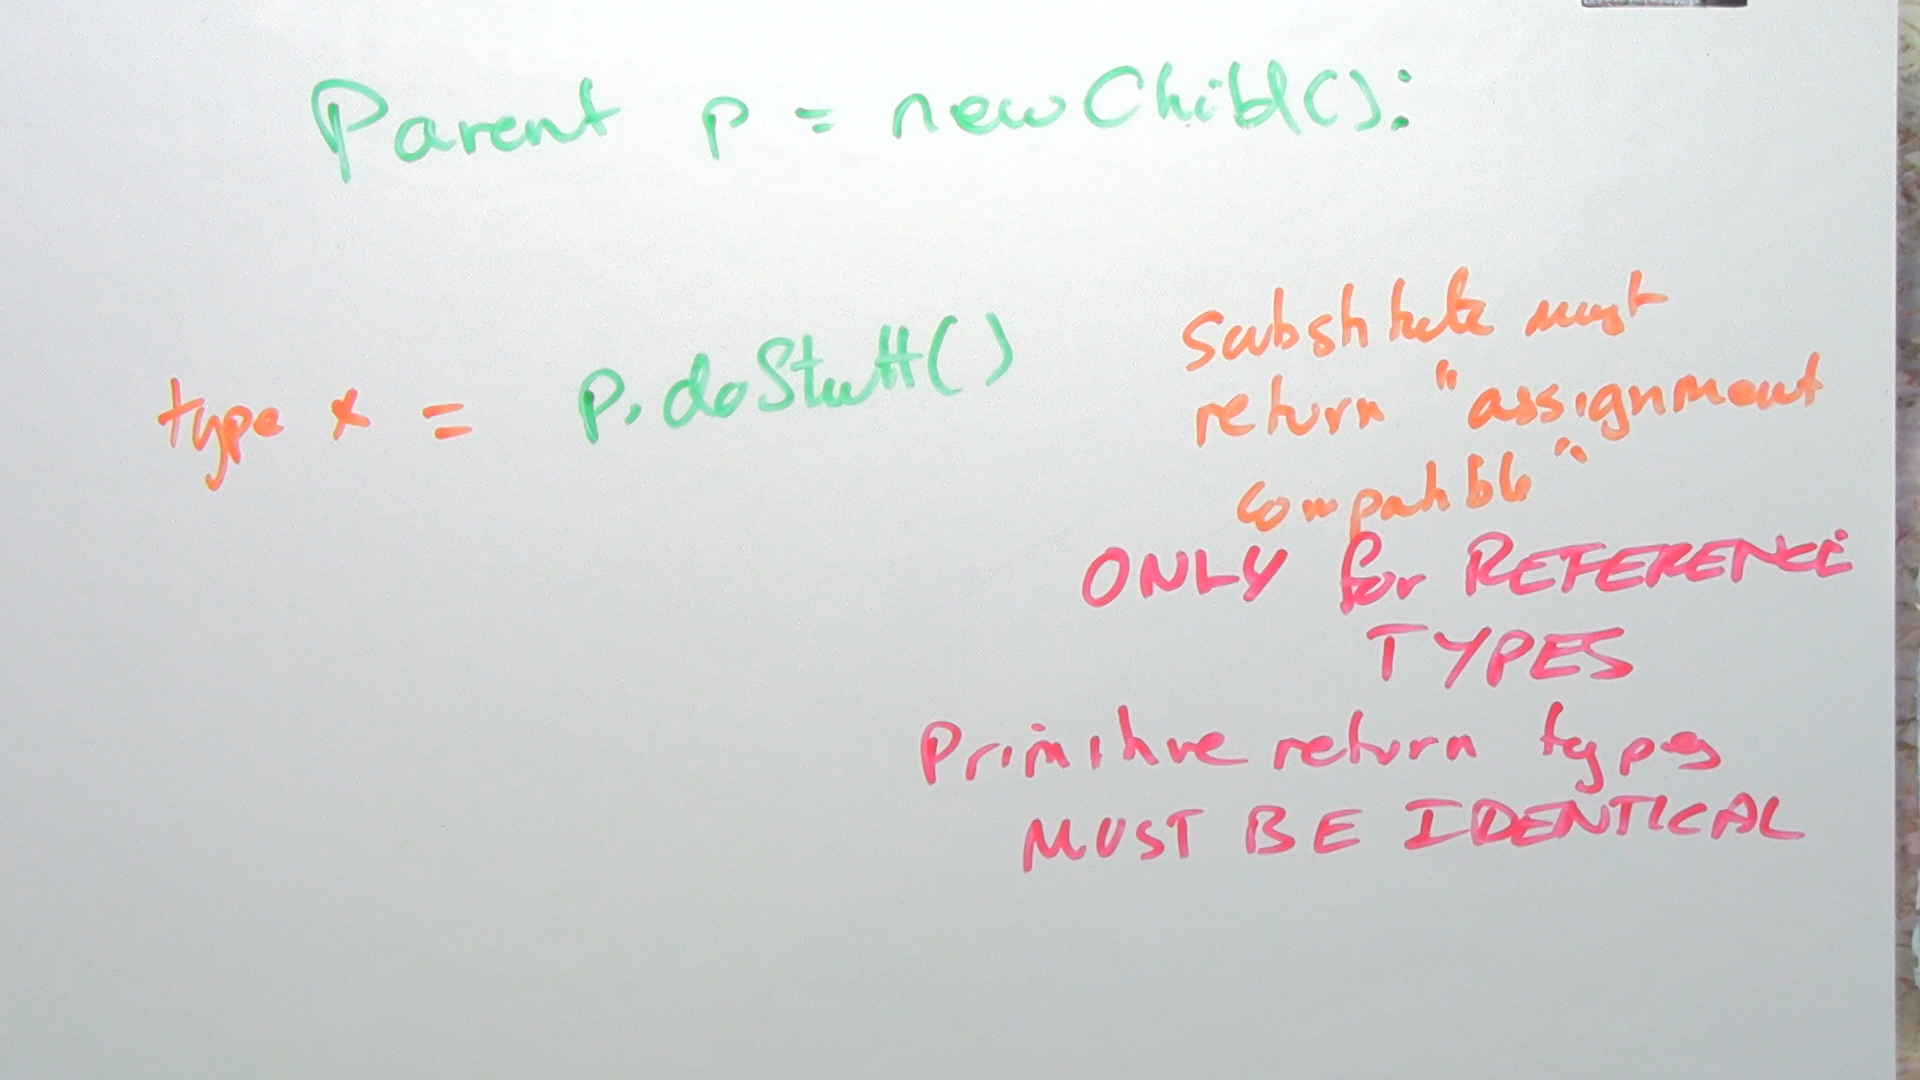 Parent p = new Child();
type x = p.doStuff()
Substitute must
return "assignment
compatible"
ONLY for REFERENCE
TYPES
Primitive return types
MUST BE IDENTICAL